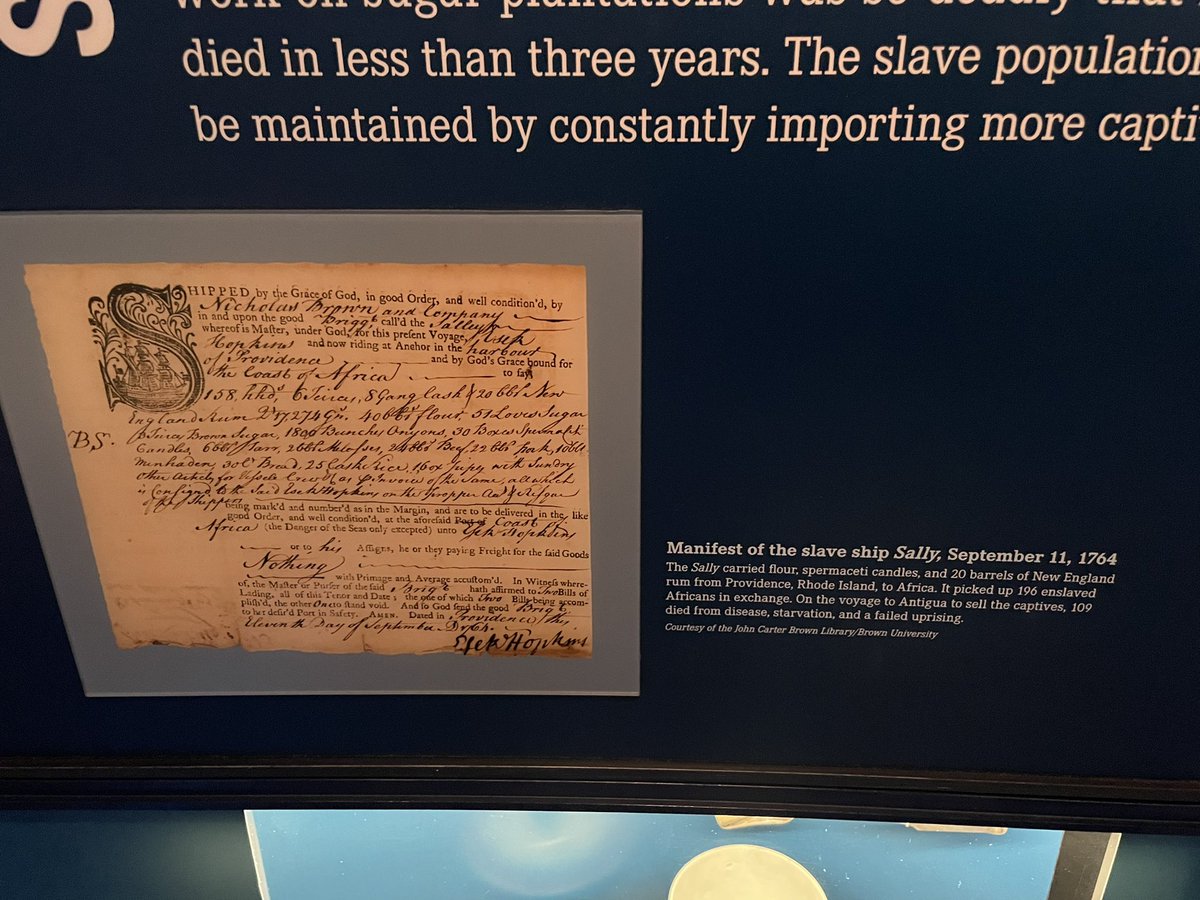 S
work on sugar plantations was so deadly that
died in less than three years. The slave population
be maintained by constantly importing more capti
SHIPPED by the Grace of God, in good Order, and well condition'd, by
Nicholas Brown and Company
in and upon the good Brigg call'd the Salley
whereof is Master, under God, for this present Voyage, Esek
Hopkins and now riding at Anchor in the harbour
of Providence and by God's Grace bound for
the Coast of Africa to say
158 hhds 6 Teirces, 8 Gang Cask & 20 bbl New
England Rum 17274 Gs. 40 bbs flour, 51 Loves Sugar
BS.
Teirces Brown Sugar, 1800 Bunches Onyons, 30 Boxes Spermaceti
Candles, 6 bbs Tarr, 2 bbs Molosses, bbs Beef, 22 bbs Pork, 10 bbl
Menhaden, 30 C Bread, 25 Casks Rice, with Sundry
other Articles for Vessels Crew as Invoice of the Same, all which
is Consign'd to the Said Esek Hopkins on the Propper &
of the Shippers
being mark'd and number'd as in the Margin, and are to be delivered in the like
good Order, and well condition'd, at the aforesaid Port of Coast of
Africa (the Danger of the Seas only excepted) unto Esek Hopkins
or to his Assigns, he or they paying Freight for the said Goods
Nothing
with Primage and Average accustom'd. In Witness where-
of, the Master or Purser of the said Brigt hath affirmed to Two Bills of
Lading, all of this Tenor and Date; the one of which Two Bills being accom-
plish'd, the other One to stand void. And so God send the good Brigt
to her desir'd Port in Safety. AMEN. Dated in Providence this
Eleventh Day of September 1764
Esek Hopkins
Manifest of the slave ship Sally, September 11, 1764
The Sally carried flour, spermaceti candles, and 20 barrels of New England
rum from Providence, Rhode Island, to Africa. It picked up 196 enslaved
Africans in exchange. On the voyage to Antigua to sell the captives, 109
died from disease, starvation, and a failed uprising.
Courtesy of the John Carter Brown Library/Brown University